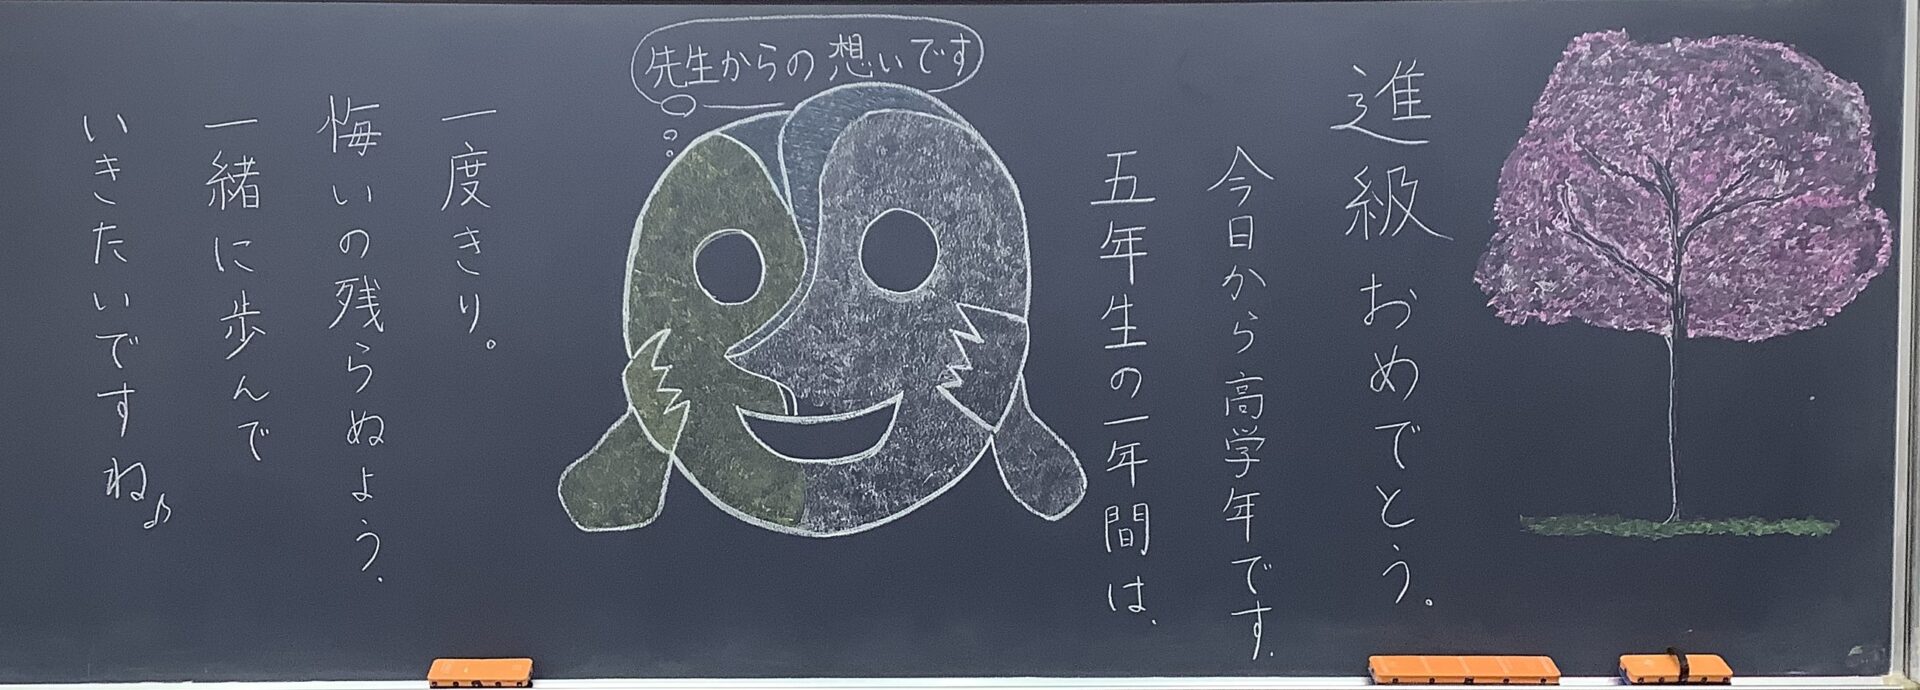 進級おめでとう。
今日から高学年です.
五年生の一年間は、
先生からの想いです
一度きり。
悔いの残らぬよう.
一緒に歩んで
いきたいですね♪